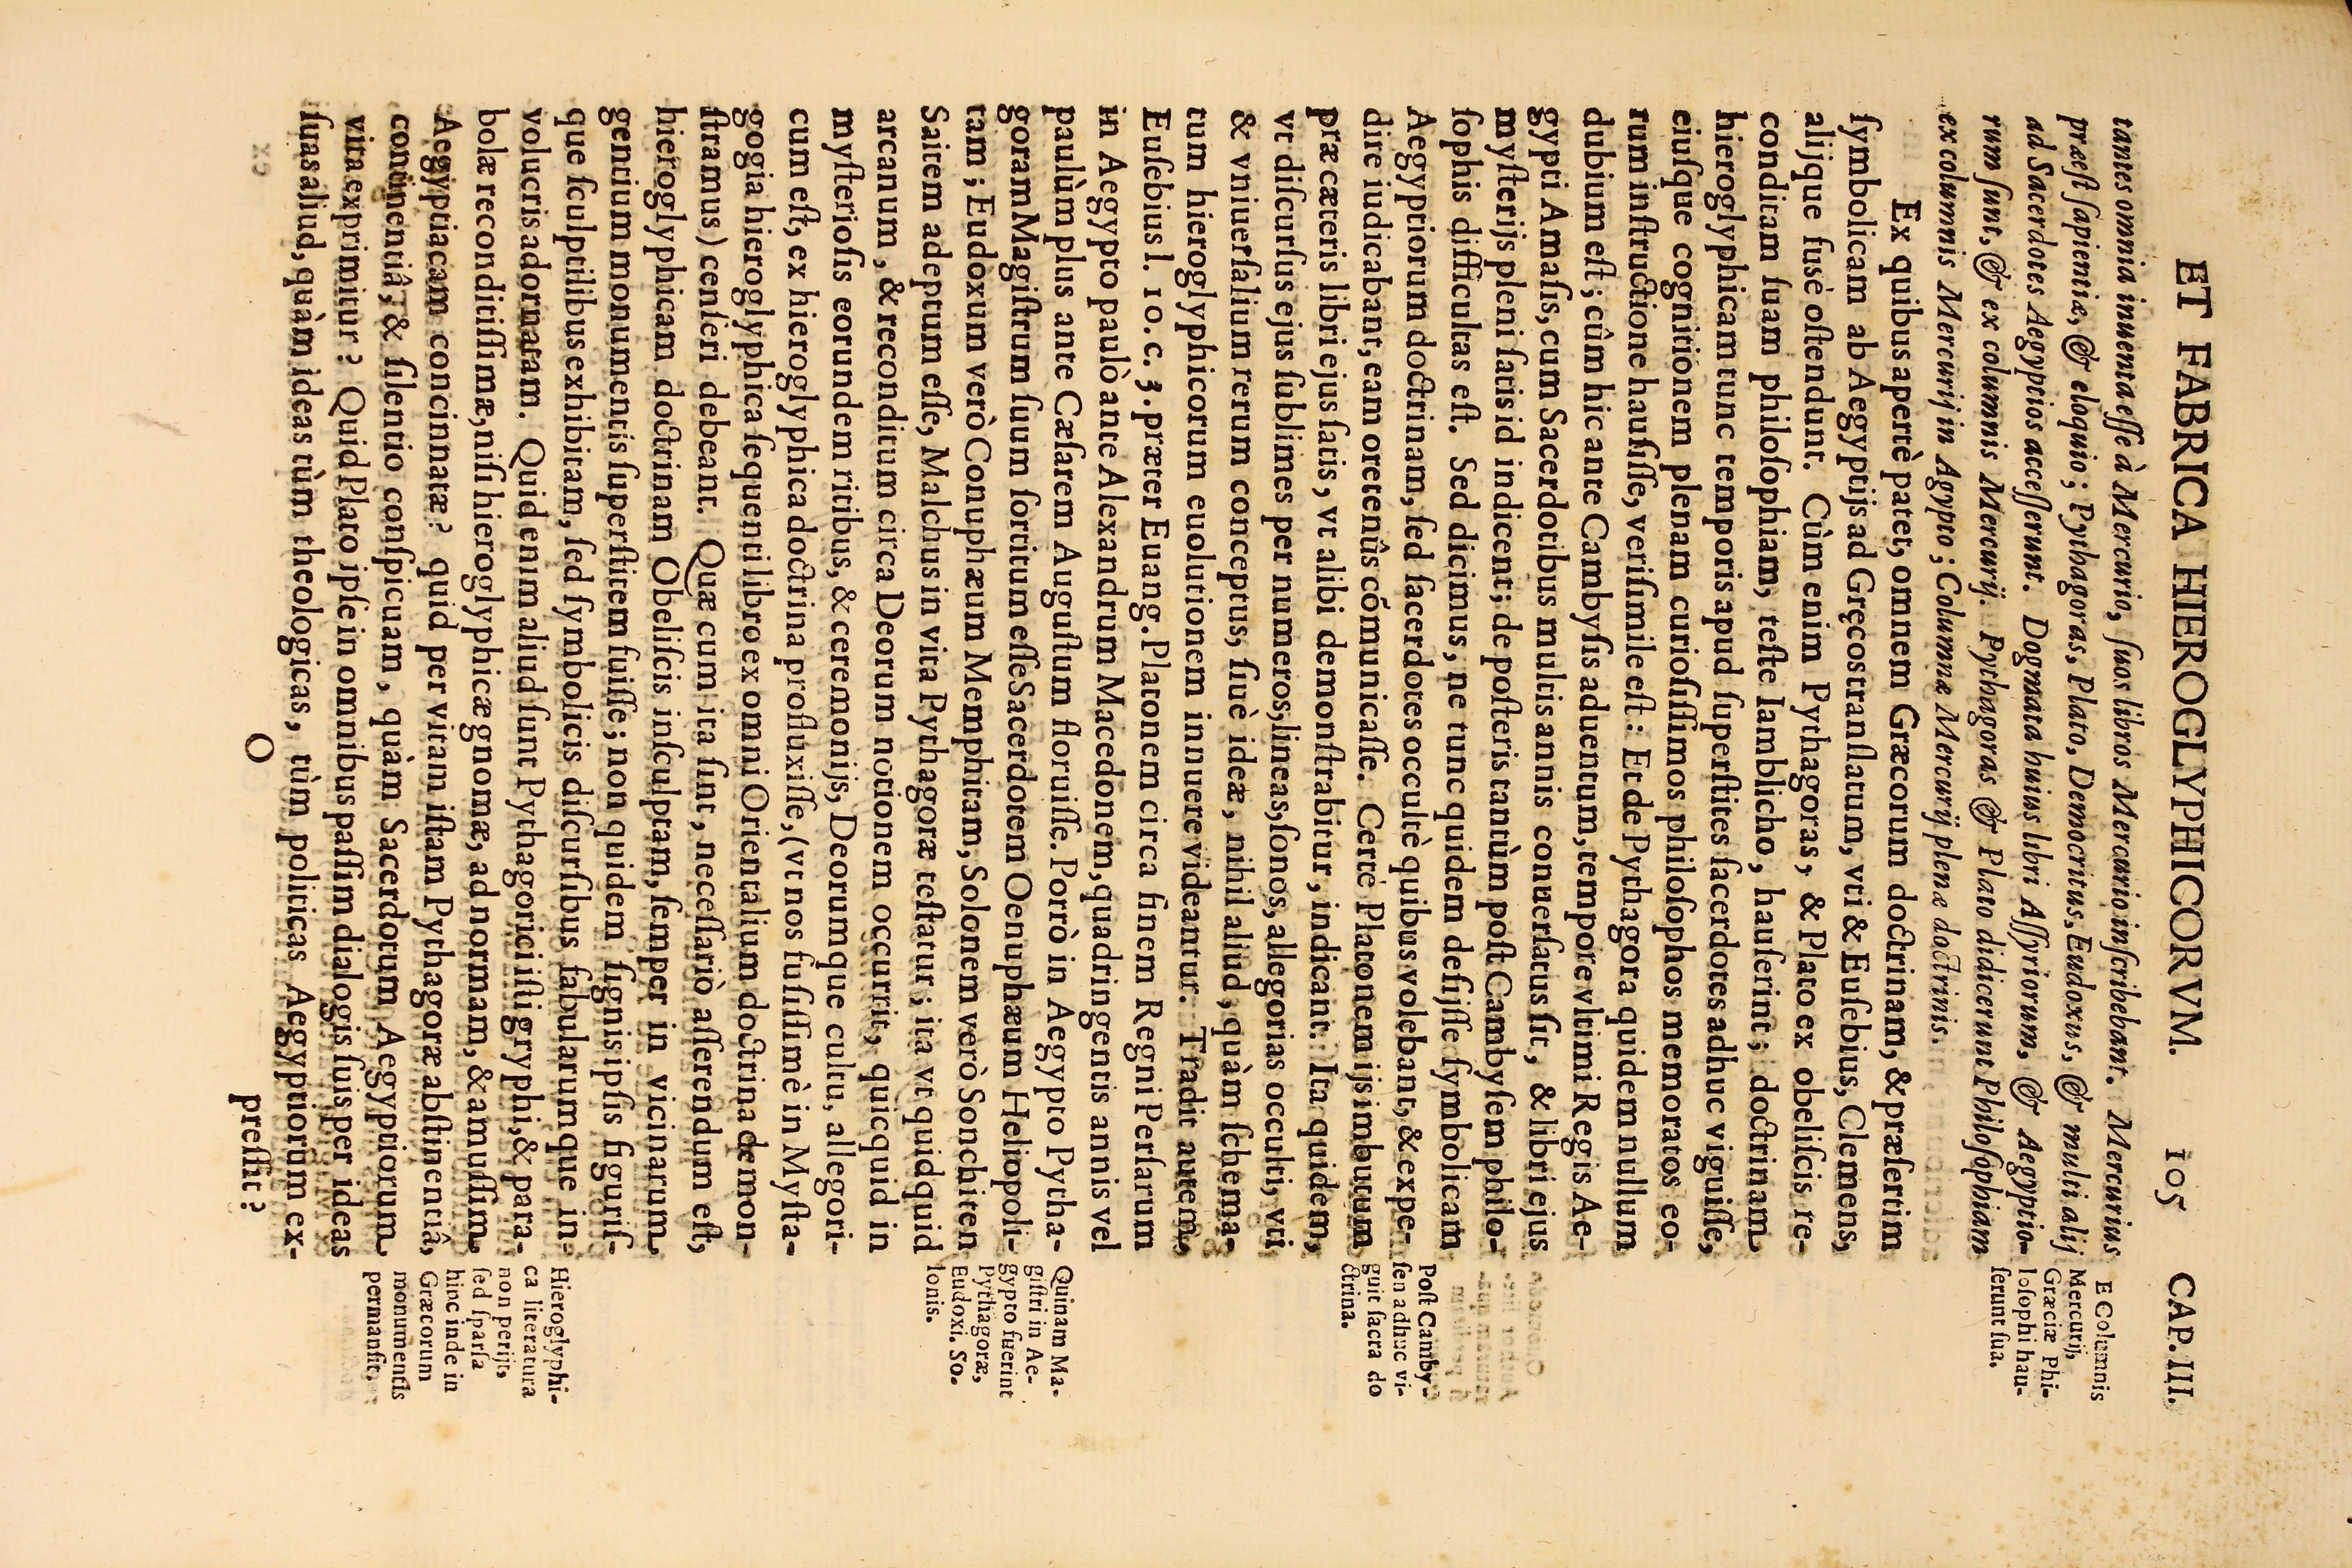 ET FABRICA HIEROGLYPHICORVM. 105 CAP. III.
tantes omnia inuenta eſſe à Mercurio, ſuos libros Mercurio inſcribebant. Mercurius
præeſt ſapientiæ, & eloquio; Pythagoras, Plato, Democritus, Eudoxus, & multi alij
ad Sacerdotes Aegyptios acceſſerunt. Dogmata huius libri Aſſyriorum, & Aegyptio-
rum ſunt, & ex columnis Mercurij. Pythagoras & Plato didicerunt Philoſophiam
ex columnis Mercurij in Ægypto; Columnæ Mercurij plenæ doctrinis.
E Columnis
Mercurij,
Græciæ Phi-
loſophi hau-
ſerunt ſua.
Ex quibus apertè patet, omnem Græcorum doctrinam, & præſertim
ſymbolicam ab Aegyptijs ad Gręcos tranſlatum, vti & Euſebius, Clemens,
alijque fusè oſtendunt. Cùm enim Pythagoras, & Plato ex obeliſcis re-
conditam ſuam philoſophiam, teſte Iamblicho, hauſerint; doctrinam
hieroglyphicam tunc temporis apud ſuperſtites ſacerdotes adhuc viguiſſe,
eiuſque cognitionem plenam curioſiſſimos philoſophos memoratos eo-
rum inſtructione hauſiſſe, veriſimile eſt: Et de Pythagora quidem nullum
dubium eſt; cûm hic ante Cambyſis aduentum, tempore vltimi Regis Ae-
gypti Amaſis, cum Sacerdotibus multis annis conuerſatus ſit, & libri ejus
myſterijs pleni ſatis id indicent; de poſteris tantùm poſt Cambyſem philo-
ſophis difficultas eſt. Sed dicimus, ne tunc quidem deſijſſe ſymbolicam
Aegyptiorum doctrinam, ſed ſacerdotes occultè quibus volebant, & expe-
dire iudicabant, eam oretenûs cómunicaſſe. Certè Platonem ijs imbutum
præ cæteris libri ejus ſatis, vt alibi demonſtrabitur, indicant: Ita quidem,
vt diſcurſus ejus ſublimes per numeros, lineas, ſonos, allegorias occulti, vti
& vniuerſalium rerum conceptus, ſiuè ideæ, nihil aliud, quàm ſchema-
tum hieroglyphicorum euolutionem innuere videantur. Tradit autem,
Euſebius l. 10. c. 3. præter Euang. Platonem circa finem Regni Perſarum
in Aegypto paulò ante Alexandrum Macedonem, quadringentis annis vel
paulùm plus ante Cæſarem Auguſtum floruiſſe. Porrò in Aegypto Pytha-
goram Magiſtrum ſuum ſortitum eſſe Sacerdotem Oenuphæum Heliopoli-
tam; Eudoxum verò Conuphæum Memphitam, Solonem verò Sonchiten
Saitem adeptum eſſe, Malchus in vita Pythagoræ teſtatur; ita vt quidquid
arcanum, & reconditum circa Deorum notionem occurrit, quicquid in
myſterioſis eorundem ritibus, & ceremonijs, Deorumque cultu, allegori-
cum eſt, ex hieroglyphica doctrina profluxiſſe, (vt nos fuſiſſimè in Myſta-
gogia hieroglyphica ſequenti libro ex omni Orientalium doctrina demon-
ſtramus) cenſeri debeant. Quæ cum ita ſint, neceſſariò aſſerendum eſt,
hieroglyphicam doctrinam Obeliſcis inſculptam, ſemper in vicinarum
gentium monumentis ſuperſtitem fuiſſe; non quidem ſignis ipſis figuriſ-
que ſculptilibus exhibitam, ſed ſymbolicis diſcurſibus fabularumque in-
volucris adornatam. Quid enim aliud ſunt Pythagorici iſti gryphi, & para-
bolæ reconditiſſimæ, niſi hieroglyphicæ gnomæ, ad normam, & amuſſim
Aegyptiacam concinnatæ? quid per vitam iſtam Pythagoræ abſtinentiâ,
continentiâ, & ſilentio conſpicuam, quàm Sacerdotum Aegyptiorum
vita exprimitur? Quid Plato ipſe in omnibus paſſim dialogis ſuis per ideas
ſuas aliud, quàm ideas tùm theologicas, tùm politicas Aegyptiorum ex-
Poſt Camby-
ſen adhuc vi-
guit ſacra do
ctrina.
Quinam Ma-
giſtri in Ae-
gypto fuerint
Pythagoræ,
Eudoxi. So-
lonis.
Hieroglyphi-
ca literatura
non perijt,
ſed ſparſa
hinc inde in
Græcorum
monumentis
permanſit.
O
preſſit?